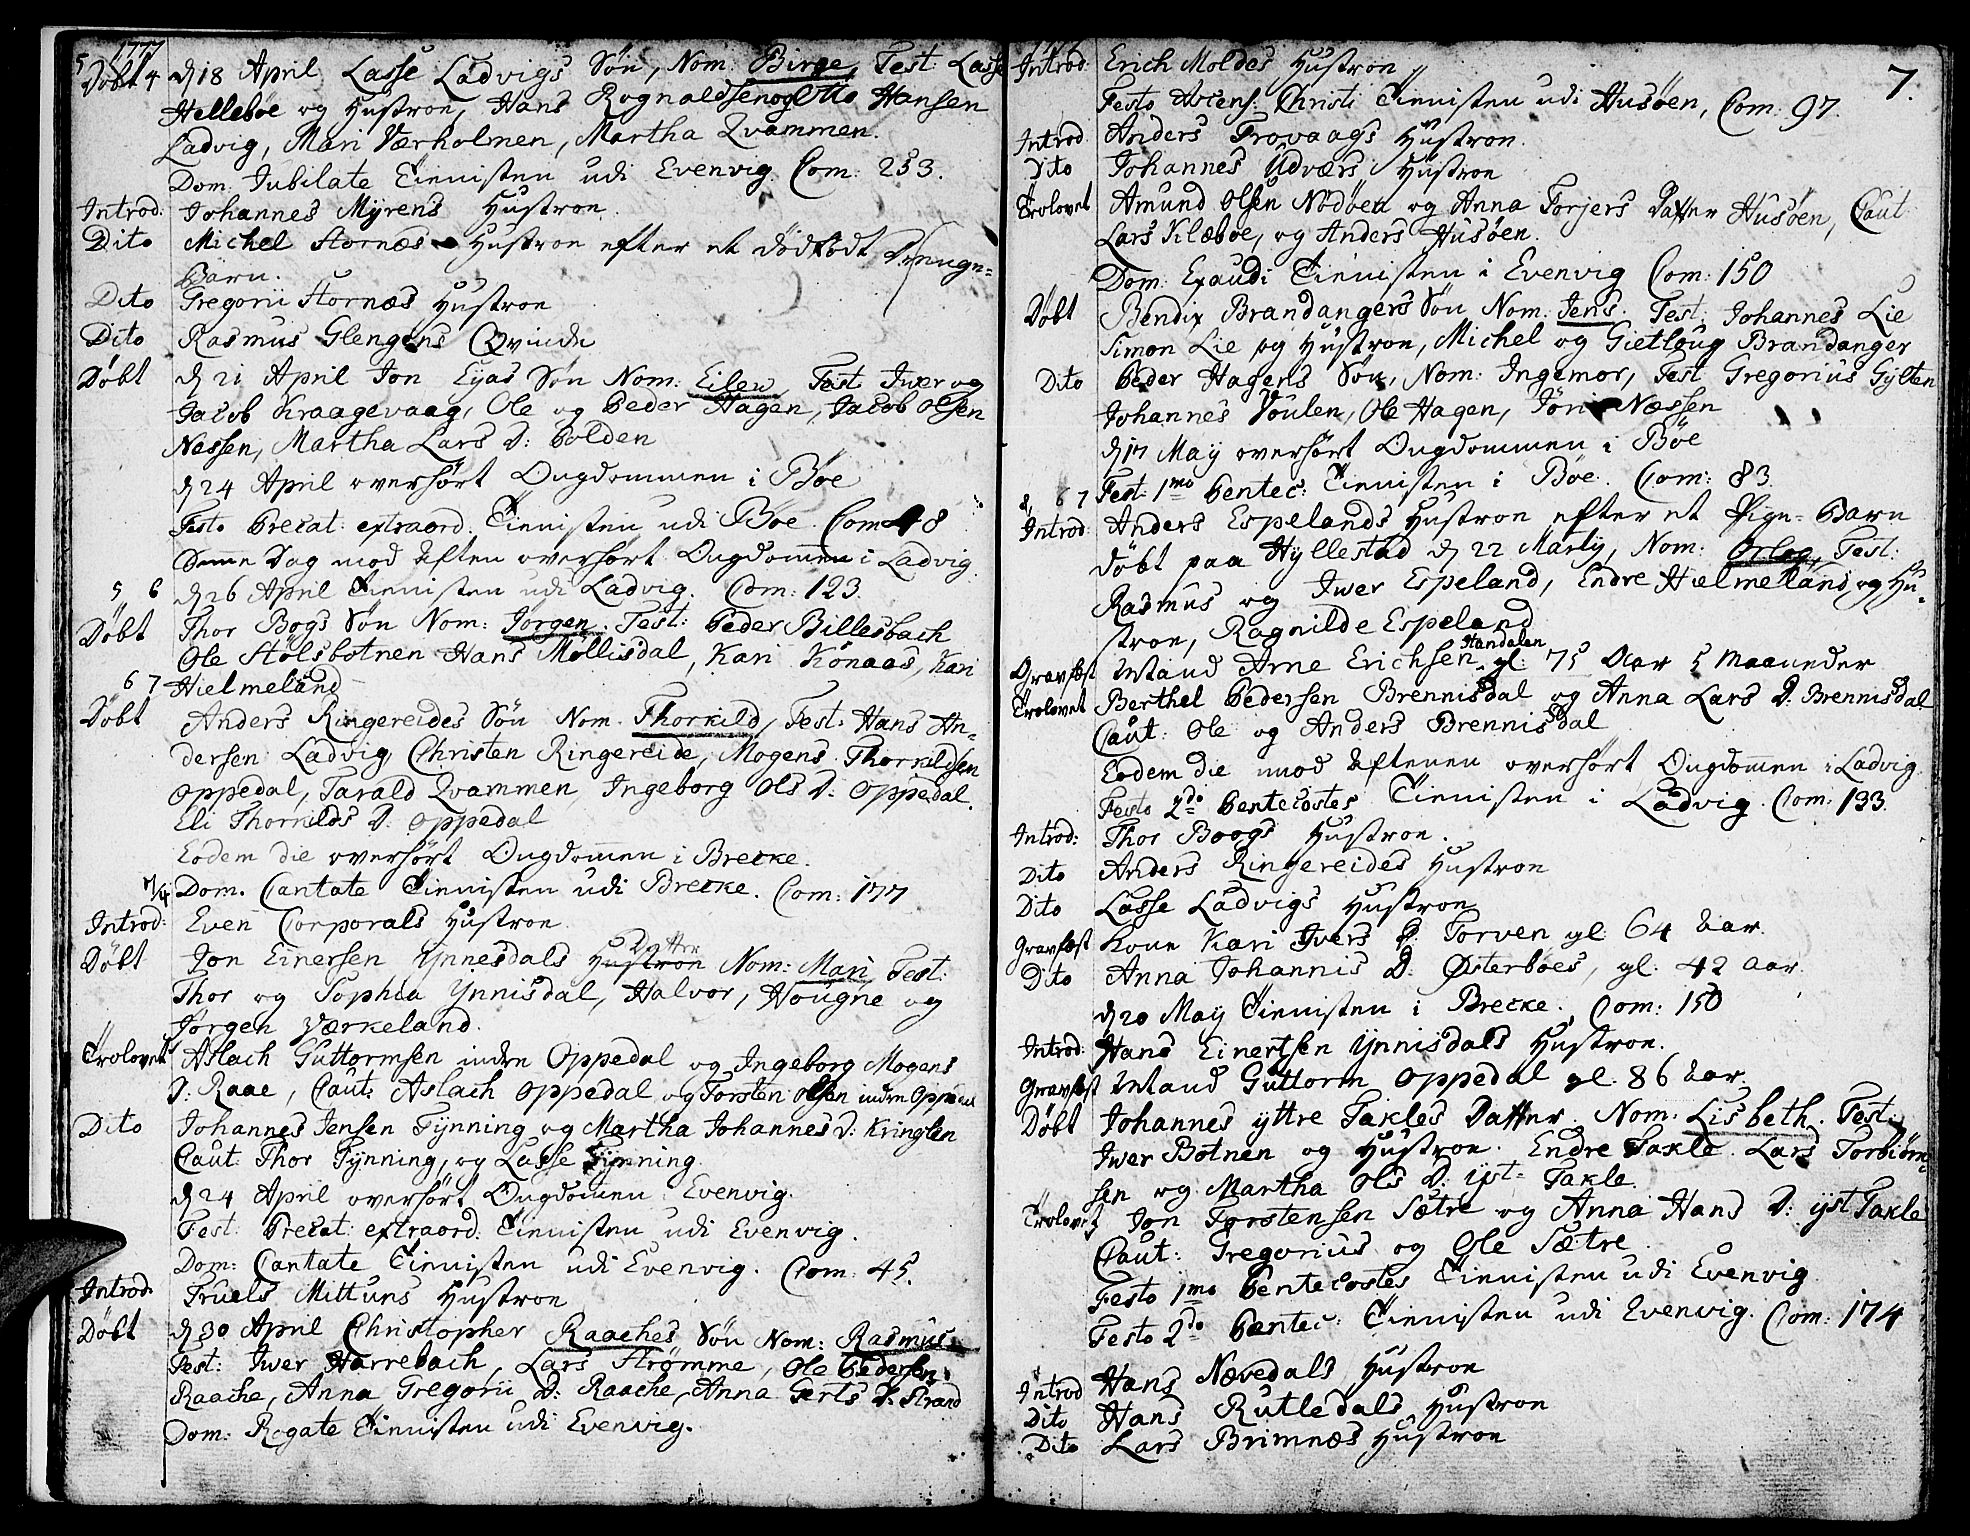 1777
5 Døbt 4 d 18 April Lasse Ladvigs Søn, Nom: Birge, Test: Lasse
Hellebøe og Hustroe, Hans Rognaldsen og Otto Hansen
Ladvig, Mari Værholmen, Martha Qvammen.
Dom: Jubilate Tienisten udi Evenvig. Com: 253.
Introd: Johannes Myrens Hustroe.
Dito Michel Stornæs Hustroe efter et dødfødt Drenge-
Barn.
Dito Gregorii Stornæs Hustroe
Dito Rasmus Glengens Qvinde
Døbt d 21 April Jon Eyas Søn Nom: Eilew, Test Iwer og
Jacob Kraagevaag, Ole og Peder Hagen, Jacob Olsen
Nessen, Martha Lars D: Polden
d 24 April overhørt Ungdommen i Bøe
Festo Precat: extraord. Tienisten udi Bøe. Com 48
Denne Dag mod Aften overhørt Ungdomen i Ladvig
5 6 d 26 April Tienisten udi Ladvig. Com: 123.
Døbt Thor Bogs Søn Nom: Jørgen. Test: Peder Billesbach
Ole Stølsbotnen Hans Møllisdal, Kari Kønaas, Kari
6 7 Hielmeland
Døbt Anders Ringereides Søn Nom. Thorkild, Test: Hans An-
dersen Ladvig, Christen Ringereide, Mogens Thorkildsen
Oppedal, Tarald Qvammen, Ingeborg Ols D: Oppedal.
Eli Thorkilds D: Oppedal
Eodem die overhørt Ungdomen i Brecke.
7/4 Dom. Cantate Tienisten udi Brecke. Com: 177
Introd: Even Corporals Hustroe
Datter
Døbt Jon Einersen Ynnesdals Hustroe Nom: Mari Test:
Thor og Sophia Ynnisdal, Halvor, Hougne og
Jørgen Værkeland.
Trolovet Aslach Guttormsen indre Oppedal og Ingeborg Mogens
D: Raae, Caut: Aslach Oppedal og Torsten Olsen indre Oppedal
Dito Johannes Jensen Tynning og Martha Johannes D: Kringlen
Caut: Thor Tynning, og Lasse Tynning.
d 24 April overhørt Ungdomen i Evenvig.
Fest: Precat: extraord: Tienisten udi Evenvig.
Dom: Cantate Tienisten udi Evenvig. Com: 45.
Introd: Truels Mittuns Hustroe
Døbt d 30 April Christopher Raaches Søn Nom: Rasmus
Test: Iwer Harrebach, Lars Strømme, Ole Pedersen
Raache, Anna Gregorii D: Raache, Anna Gerts D: Strand
Dom: Rogate Tienisten udi Evenvig.
7.
Introd: Erich Moldes Hustroe
Festo Ascens: Christi Tienisten udi Husøen, Com: 97.
Introd Anders Trovaags Hustroe.
Dito Johannes Udværs Hustroe
Trolovet Amund Olsen Nodøen og Anna Torjers Datter Husøen, Caut:
Lars Klæboe, og Anders Husøen.
Dom: Exaudi Tienisten i Evenvig Com: 150
Døbt Bendix Brandangers Søn Nom: Jens. Test: Johannes Lie
Simon Lie og Hustroe, Michel og Gietloug Brandanger
Dito Peder Hagens Søn, Nom: Ingemor, Test Gregorius Gylten
Johannes Voulen, Ole Hagen, Jøri Næssen
d 17 May overhørt Ungdommen i Bøe
8 6 7 Fest: 1mo Pentec: Tienisten i Bøe. Com: 83.
Introd: Anders Espelands Hustroe efter et Pige-Barn
døbt paa Hyllestad d 22 Martij, Nom: Orleg, Test:
Rasmus og Iwer Espeland, Endre Hielmeland og Hu-
stroe, Ragnilde Espeland
Handalen
Gravfæst Mand Arne Erichsen gl: 75 Aar 5 Maaneder
Trolovet Berthel Pedersen Brennisdal og Anna Lars D: Brennisdal
Caut: Ole og Anders Brennisdal
Eodem die mod Aftenen overhørt Ungdomen i Ladvig
Festo 2do Pentecostes Tienisten i Ladvig. Com: 133.
Introd: Thor Boogs Hustroe.
Dito Anders Ringereides Hustroe
Dito Lasse Ladvigs Hustroe
Gravfæst Kone Kari Ivers D: Torven gl: 64 Aar.
Dito Anna Johannis D: Østerbøes, gl: 42 Aar.
d 20 May Tienisten i Brecke. Com: 150
Introd: Hans Einertsen Ynnisdals Hustroe.
Gravfæst Mand Guttorm Oppedal gl: 86 Aar.
Døbt Johannes Yttre Takles Datter. Nom: Lisbeth. Test:
Iwer Botnen og Hustroe. Endre Takle. Lars Torbiørn-
sen og Martha Ols D: yst: Takle.
Trolovet Jon Torstensen Sætre og Anna Hans D: yst Takle
Caut: Gregorius og Ole Sætre.
Festo 1mo Pentecostes Tienisten udi Evenvig
Festo 2do Pentec: Tienisten udi Evenvig. Com: 174
Introd Hans Nævedals Hustroe
Dito Hans Rutledals Hustroe
Dito Lars Brimnæs Hustroe